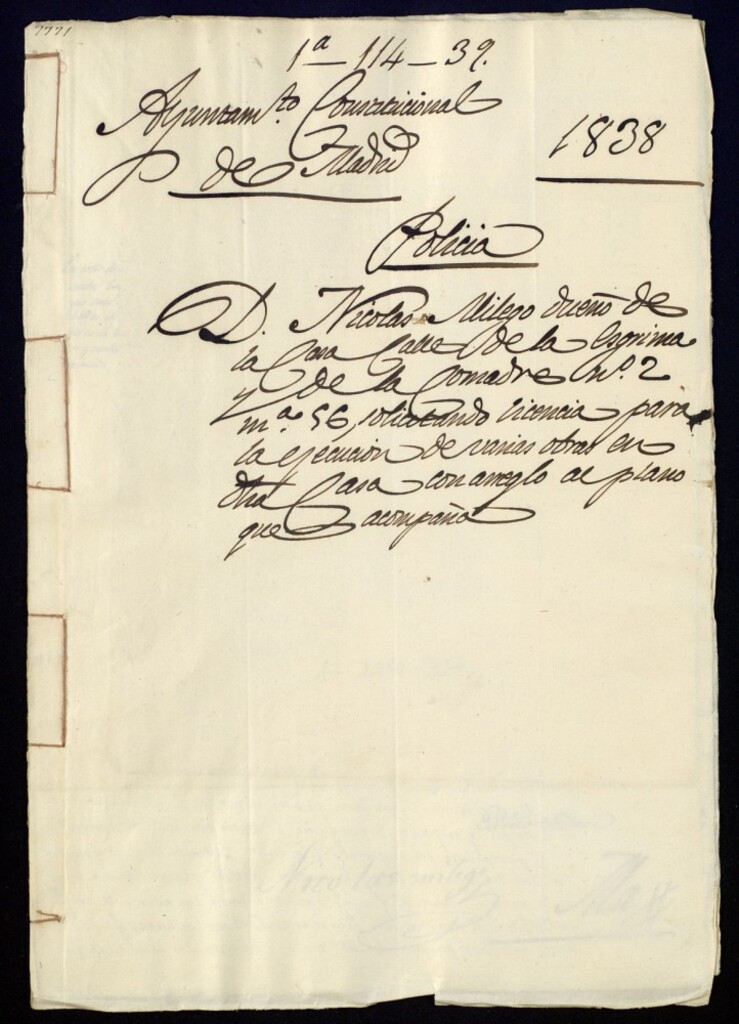 1ª-114-39.
Ayuntamto. Constitucional
de Madrid
1838
Policia
D. Nicolas Milego dueño de
la Casa Calle de la Esgrima
y de la Comadre nº. 2
mª. 56, solicitando licencia para
la ejecucion de varias obras en
dha Casa con arreglo al plano
que acompaña